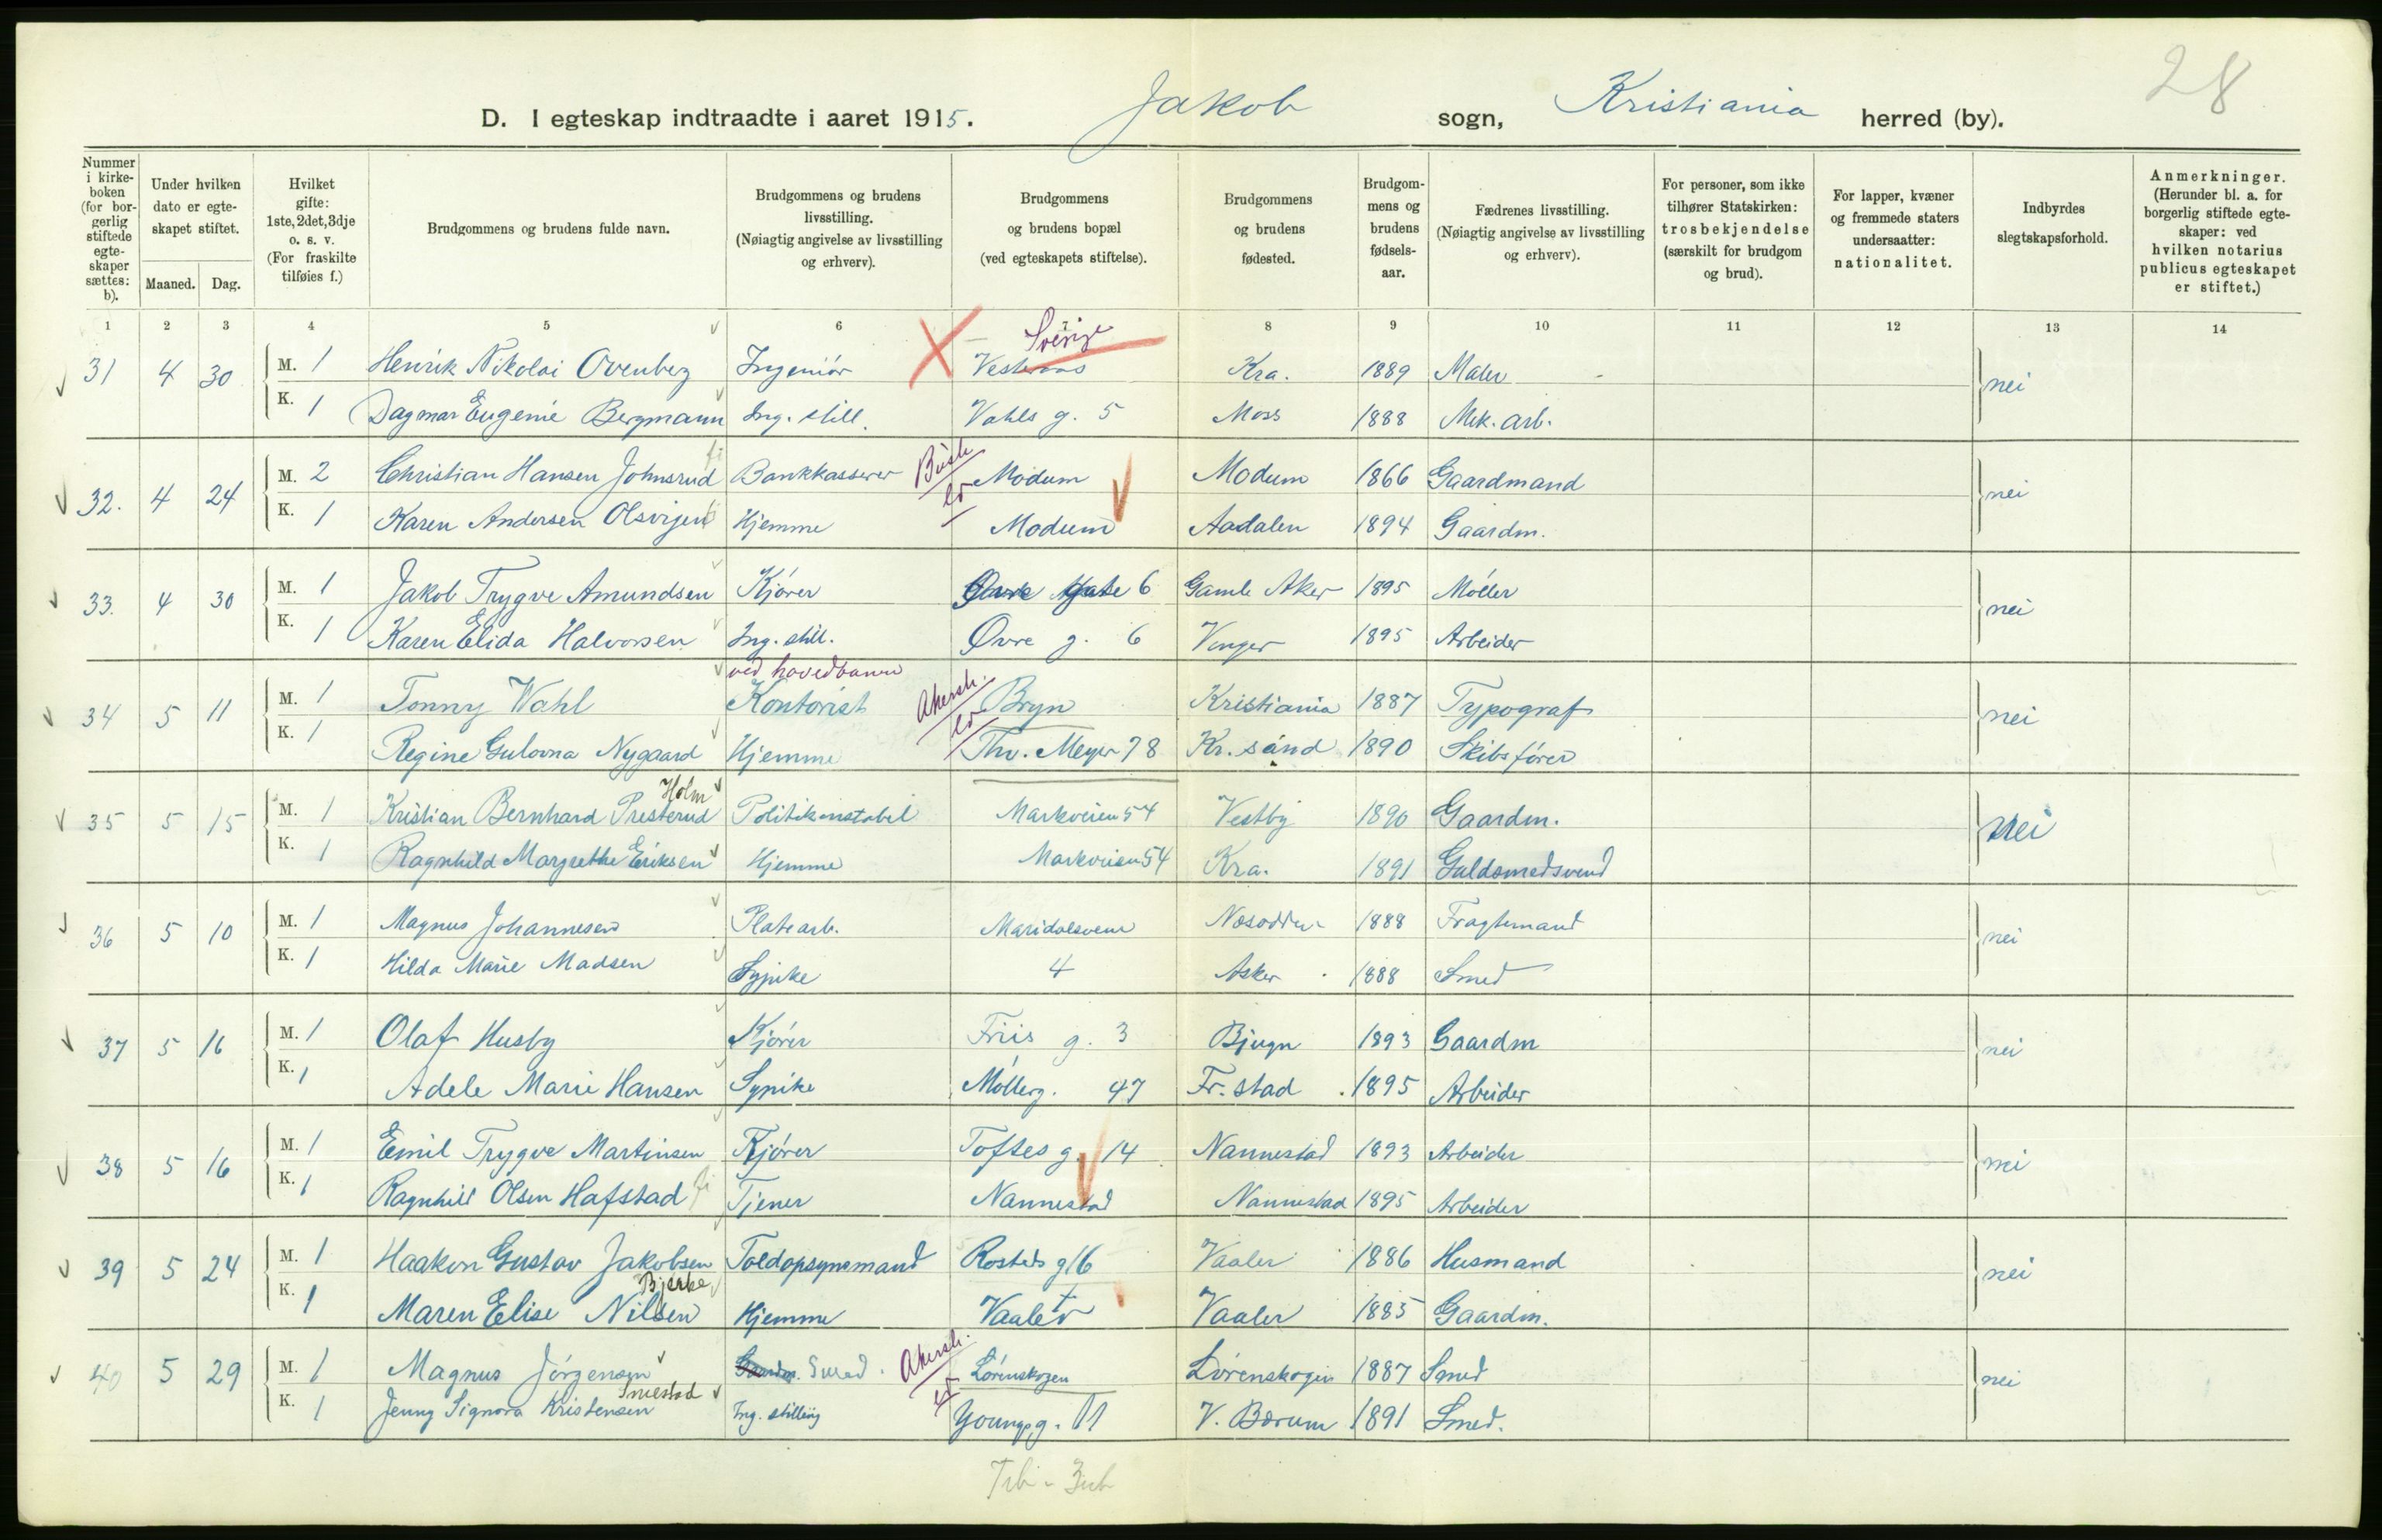 28
D. I egteskap indtraadte i aaret 1915. Jakob sogn, Kristiania herred (by).
Nummer i kirkeboken (for borgerlig stiftede egteskaper sættes: b).
Under hvilken dato er egteskapet stiftet.
Maaned. Dag.
Hvilket gifte: 1ste, 2det, 3dje o. s. v. (For fraskilte tilføies f.)
Brudgommens og brudens fulde navn.
Brudgommens og brudens livsstilling. (Nøiagtig angivelse av livsstilling og erhverv).
Brudgommens og brudens bopæl (ved egteskapets stiftelse).
Brudgommens og brudens fødested.
Brudgommens og brudens fødselsaar.
Fædrenes livsstilling. (Nøiagtig angivelse av livsstilling og erhverv).
For personer, som ikke tilhører Statskirken: trosbekjendelse (særskilt for brudgom og brud).
For lapper, kvæner og fremmede staters undersaatter: nationalitet.
Indbyrdes slegtskapsforhold.
Anmerkninger. (Herunder bl. a. for borgerlig stiftede egteskaper: ved hvilken notarius publicus egteskapet er stiftet.)
1 2 3 4 5 6 7 8 9 10 11 12 13 14
Sverige
31 4 30 M. 1 Henrik Nikolai Ovenberg Ingeniør Vesteraas Kra. 1889 Maler nei
K. 1 Dagmar Eugenie Bergmann Ing. still. Vahls g. 5 Moss 1888 Mek. arb.
32. 4 24 M. 2 Christian Hansen Johnsrud Bankkasserer Busk Modum Modum 1866 Gaardmand nei
K. 1 Karen Andersen Olsvigen Hjemme Modum Aadalen 1894 Gaardm.
33. 4 30 M. 1 Jakob Trygve Amundsen Kjører Øvre Gate 6 Gamle Aker 1895 Møller nei
K. 1 Karen Elida Halvorsen Ing. still. Øvre g. 6 Vinger 1895 Arbeider
ved hovedbanen
34 5 11 M. 1 Tonny Wahl Kontorist Akersh. Bryn Kristiania 1887 Typograf nei
K. 1 Regine Gulovna Nygaard Hjemme Thv. Meyer 78 Kr. sand 1890 Skibsfører
Holm
35 5 15 M. 1 Kristian Bernhard Presterud Politikonstabel Markveien 54 Vestby 1890 Gaardm. nei
K. 1 Ragnhild Margrethe Eriksen Hjemme Markveien 54 Kra. 1891 Guldsmedsvend
36 5 10 M. 1 Magnus Johannesen Platearb. Maridalsveien Nesodden 1888 Fragtemand nei
K. 1 Hilda Marie Madsen Sypike 4 Asker 1888 Smed
37 5 16 M. 1 Olaf Husby Kjører Friis g. 3 Bjugn 1893 Gaardm nei
K. 1 Adele Marie Hansen Sypike Møllerg. 47 Fr. stad 1895 Arbeider
38 5 16 M. 1 Emil Trygve Martinsen Kjører Toftes g. 14 Nannestad 1893 Arbeider nei
K. 1 Ragnhild Olsen Hafstad Tjener Nannestad Nannestad 1895 Arbeider
39 5 24 M. 1 Haakon Gustav Jakobsen Toldopsynsmand Rosteds g 16 Vaaler 1886 Husmand nei
Bjerke
K. 1 Maren Elise Nilsen Hjemme Vaaler Vaaler 1885 Gaardm.
40 5 29 M. 1 Magnus Jørgensen Smed Akersh. Lørenskogen Lørenskogen 1887 Smed nei
Smestad
K. 1 Jenny Signora Kristensen Ing. stilling Youngsg. 11 V. Bærum 1891 Smed.